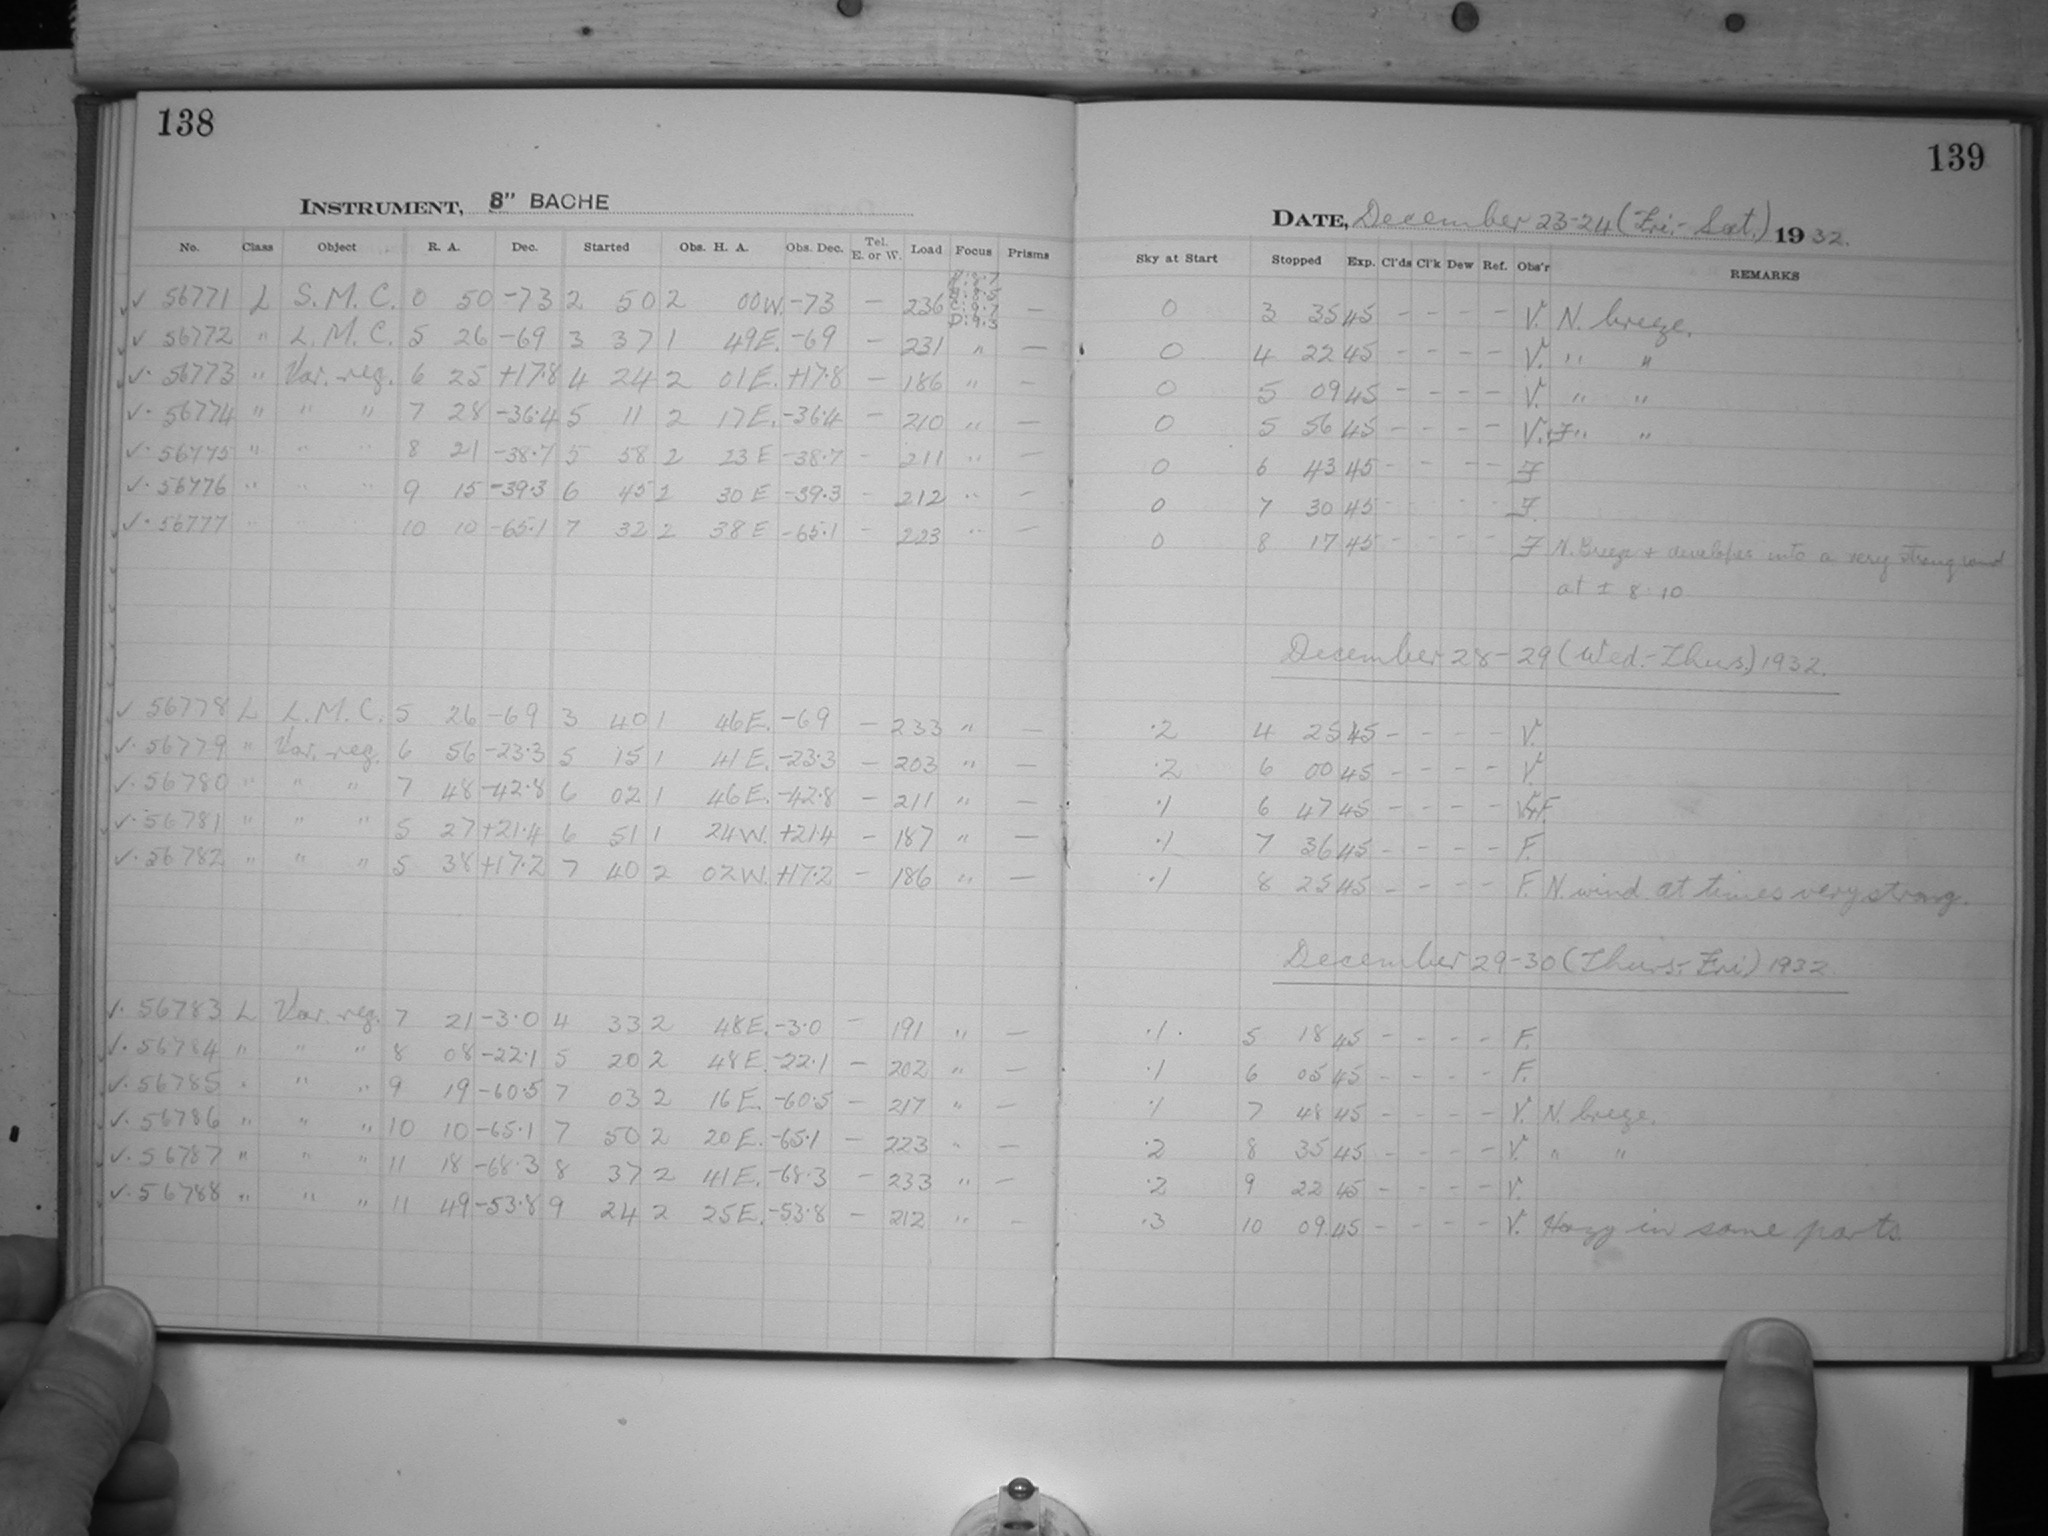 138
INSTRUMENT, 8" BACHE
No. Class Object R. A. Dec. Started Obs. H. A. Obs. Dec. Tel. E. or W. Load Focus Prisms
✓ 56771 L S.M.C. 0 50 -73 2 50 2 00W. -73 — 236 —
✓ 56772 " L.M.C. 5 26 -69 3 37 1 49E. -69 — 231 " —
✓· 56773 " Var. reg. 6 25 +17.8 4 24 2 01E. +17.8 — 186 " —
✓· 56774 " " " 7 28 -36.4 5 11 2 17E. -36.4 — 210 " —
✓· 56775 " " " 8 21 -38.7 5 58 2 23E -38.7 — 211 " —
✓· 56776 " " " 9 15 -39.3 6 45 2 30E -39.3 — 212 " —
✓· 56777 " " " 10 10 -65.1 7 32 2 38E -65.1 — 223 " —
✓ 56778 L L.M.C. 5 26 -69 3 40 1 46E. -69 — 233 " —
✓· 56779 " Var. reg. 6 56 -23.3 5 15 1 41E. -23.3 — 203 " —
✓· 56780 " " " 7 48 -42.8 6 02 1 46E. -42.8 — 211 " —
✓· 56781 " " " 5 27 +21.4 6 51 1 24W. +21.4 — 187 " —
✓· 56782 " " " 5 38 +17.2 7 40 2 02W. +17.2 — 186 " —
✓· 56783 L Var. reg. 7 21 -3.0 4 33 2 48E. -3.0 — 191 " —
✓· 56784 " " " 8 08 -22.1 5 20 2 48E. -22.1 — 202 " —
✓· 56785 " " " 9 19 -60.5 7 03 2 16E. -60.5 — 217 " —
✓· 56786 " " " 10 10 -65.1 7 50 2 20E. -65.1 — 223 " —
✓· 56787 " " " 11 18 -68.3 8 37 2 41E. -68.3 — 233 " —
✓· 56788 " " " 11 49 -53.8 9 24 2 25E. -53.8 — 212 " —
139
DATE, December 23-24 (Fri.-Sat.) 1932.
Sky at Start Stopped Exp. Cl'ds Cl'k Dew Ref. Obs'r REMARKS
0 3 35 45 - - - - V. N. breeze.
0 4 22 45 - - - - V. " "
0 5 09 45 - - - - V. " "
0 5 56 45 - - - - V.+F " "
0 6 43 45 - - - - F
0 7 30 45 - - - - F.
0 8 17 45 - - - - F N. Breeze + developes into a very strong wind
at ± 8.10
December 28-29 (Wed.-Thurs.) 1932.
.2 4 25 45 - - - - V.
.2 6 00 45 - - - - V.
.1 6 47 45 - - - - V+F.
.1 7 36 45 - - - - F.
.1 8 25 45 - - - - F. N. wind at times very strong.
December 29-30 (Thurs.-Fri.) 1932.
.1 5 18 45 - - - - F.
.1 6 05 45 - - - - F.
.1 7 48 45 - - - - V. N. breeze.
.2 8 35 45 - - - - V. " "
.2 9 22 45 - - - - V.
.3 10 09 45 - - - - V. Hazy in some parts.